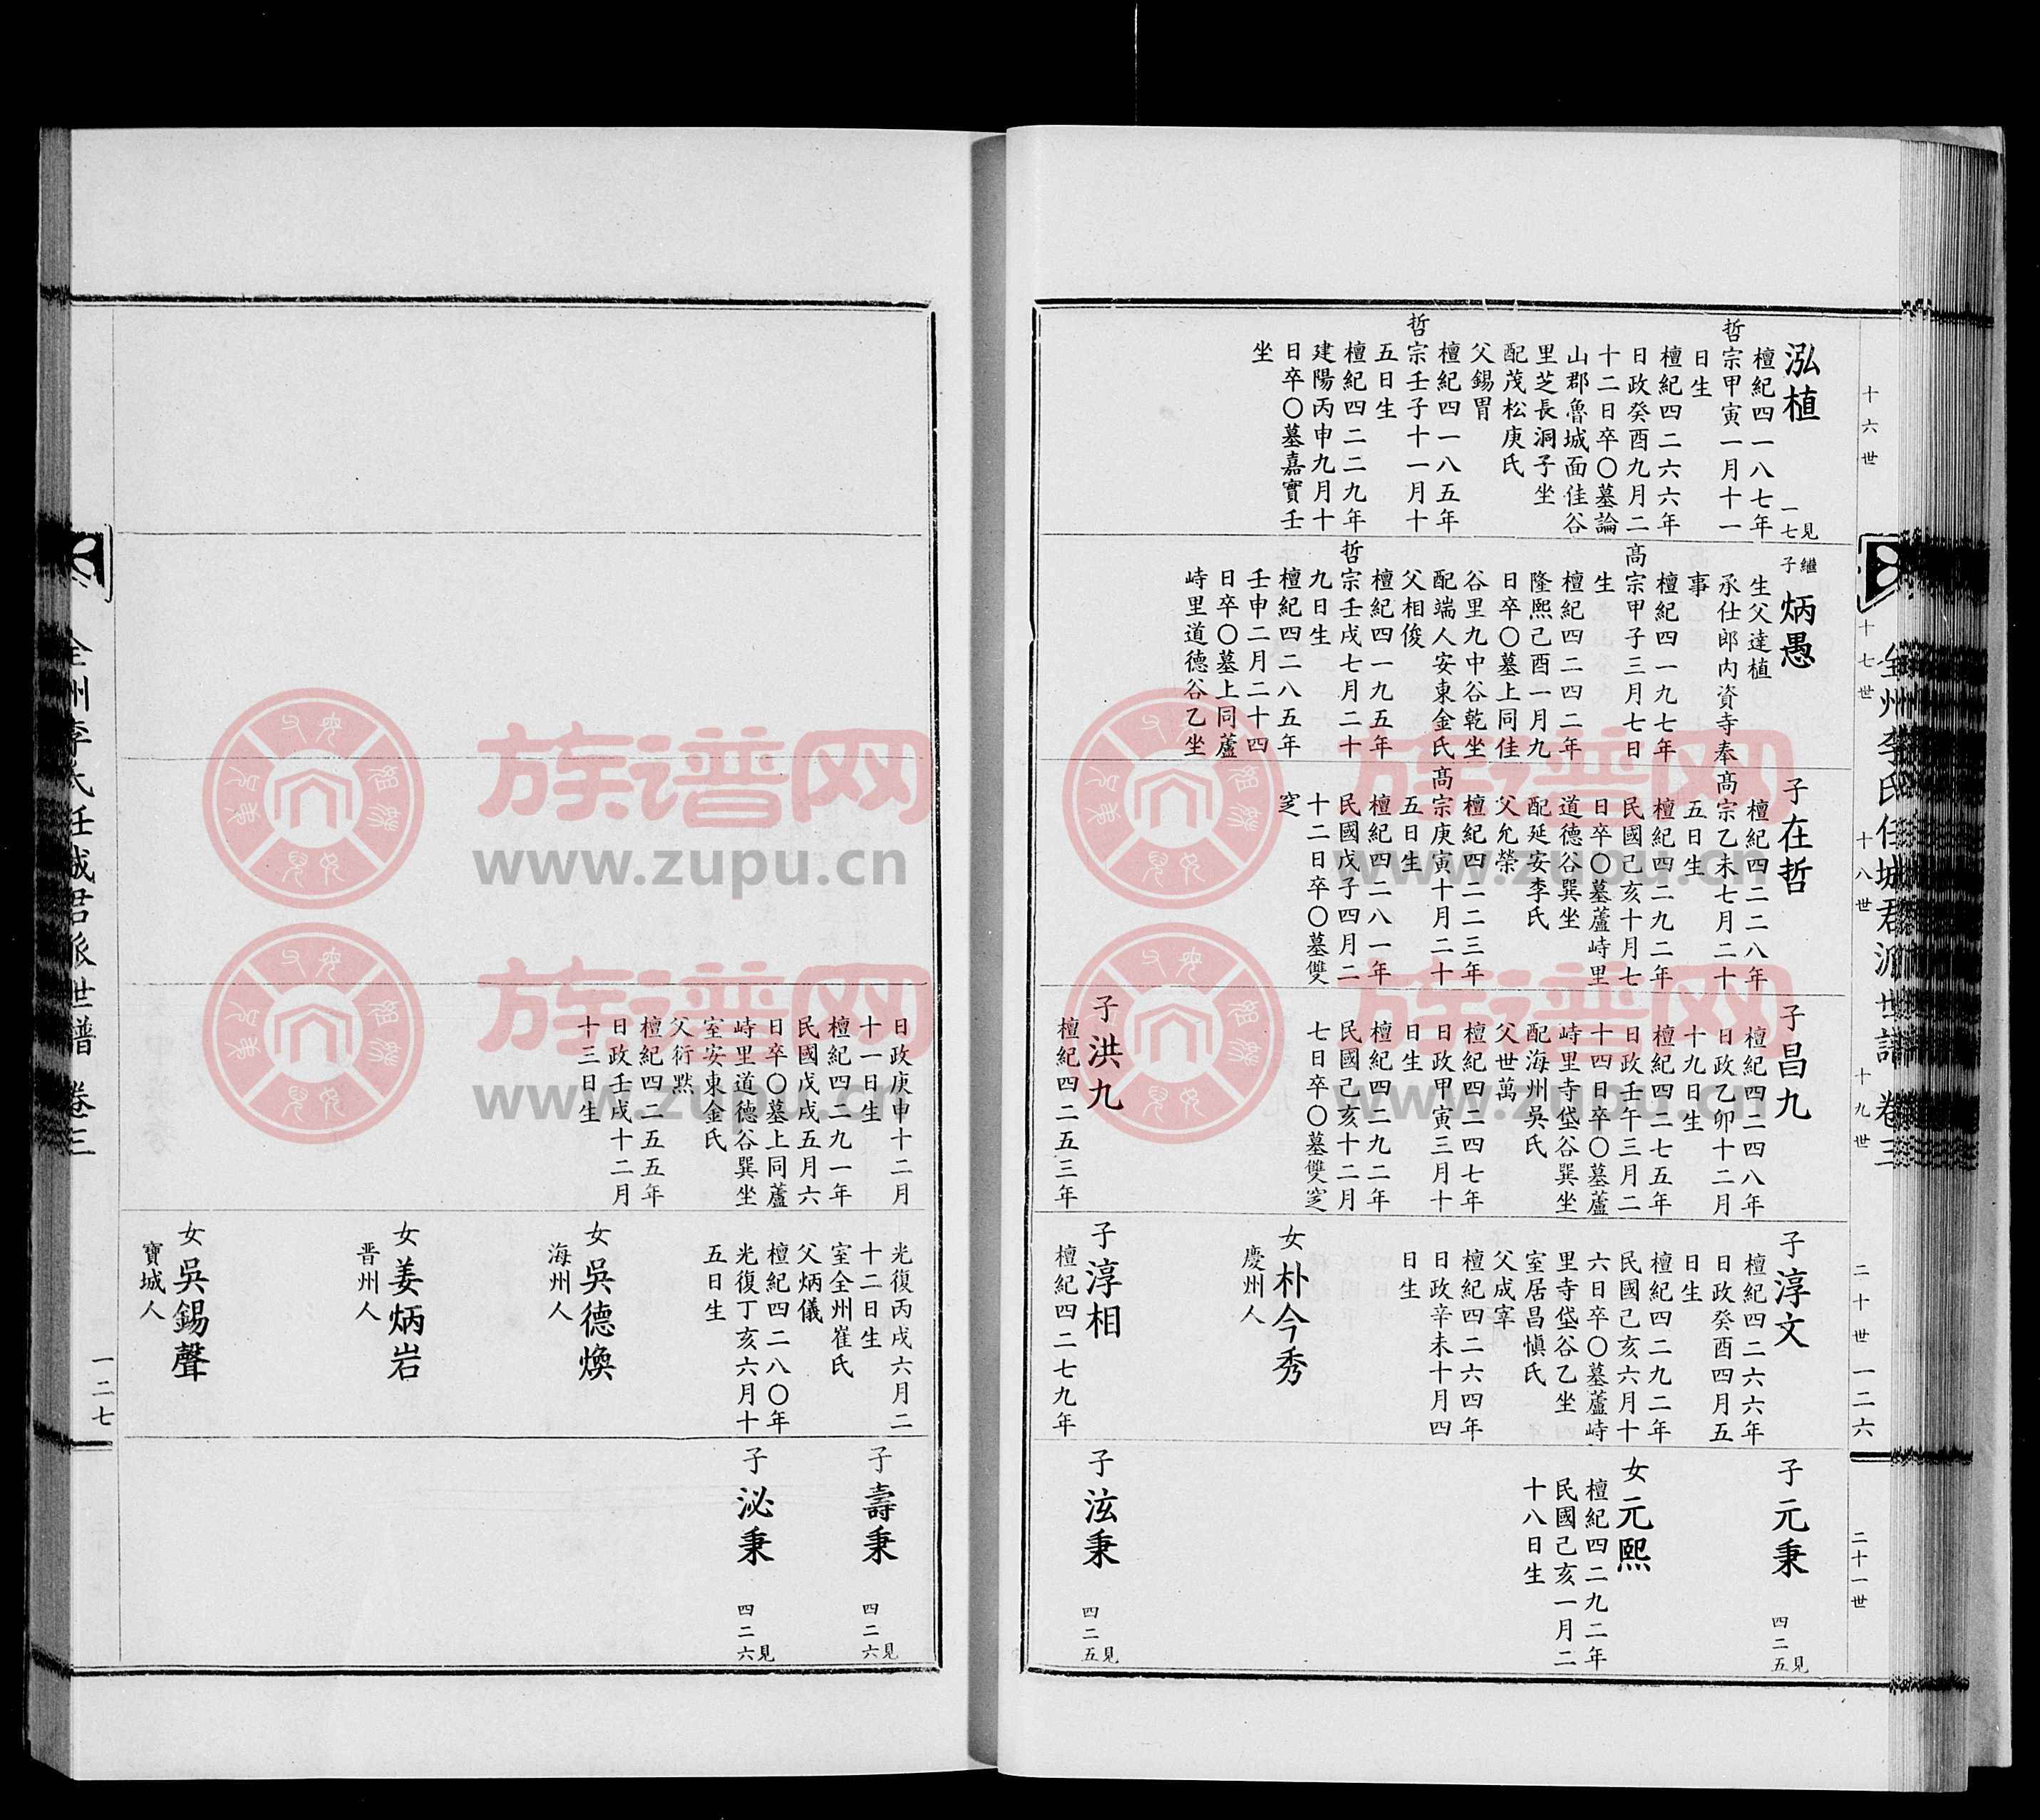 全州李氏任城君派世譜 卷三
一二六
十六世
泓植
見一七
檀紀四一八七年
哲宗甲寅一月十一
日生
檀紀四二六六年
日政癸酉九月二
十二日卒〇墓論
山郡魯城面佳谷
里芝長洞子坐
配茂松庾氏
父錫胃
檀紀四一八五年
哲宗壬子十一月十
五日生
檀紀四二二九年
建陽丙申九月十
日卒〇墓嘉實壬
坐
十七世
繼子
炳愚
生父達植
承仕郎內資寺奉
事
檀紀四一九七年
高宗甲子三月七日
生
檀紀四二四二年
隆熙己酉一月九
日卒〇墓上同佳
谷里九中谷乾坐
配端人安東金氏
父相俊
檀紀四一九五年
哲宗壬戌七月二十
九日生
檀紀四二八五年
壬申二月二十四
日卒〇墓上同蘆
峙里道德谷乙坐
十八世
子在哲
檀紀四二二八年
高宗乙未七月二十
五日生
檀紀四二九二年
民國己亥十月七
日卒〇墓蘆峙里
道德谷巽坐
配延安李氏
父允榮
檀紀四二二三年
高宗庚寅十月二十
五日生
檀紀四二八一年
民國戊子四月二
十二日卒〇墓雙
窆
十九世
子昌九
檀紀四二四八年
日政乙卯十二月
十九日生
檀紀四二七五年
日政壬午三月二
十四日卒〇墓蘆
峙里寺垈谷巽坐
配海州吳氏
父世萬
檀紀四二四七年
日政甲寅三月十
日生
檀紀四二九二年
民國己亥十二月
七日卒〇墓雙窆
子洪九
檀紀四二五三年
二十世
子淳文
檀紀四二六六年
日政癸酉四月五
日生
檀紀四二九二年
民國己亥六月十
六日卒〇墓蘆峙
里寺垈谷乙坐
室居昌愼氏
父成宰
檀紀四二六四年
日政辛未十月四
日生
女朴今秀
慶州人
子淳相
檀紀四二七九年
二十一世
子元秉
見四二五
女元熙
檀紀四二九二年
民國己亥一月二
十八日生
子泫秉
見四二五
日政庚申十二月
十一日生
檀紀四二九一年
民國戊戌五月六
日卒〇墓上同蘆
峙里道德谷巽坐
室安東金氏
父衍㸃
檀紀四二五五年
日政壬戌十二月
十三日生
光復丙戌六月二
十二日生
室全州崔氏
父炳儀
檀紀四二八〇年
光復丁亥六月十
五日生
女吳德煥
海州人
女姜炳岩
晋州人
女吳錫聲
寶城人
子壽秉
見四二六
子泌秉
見四二六
全州李氏任城君派世譜 卷三
一二七
族谱网
www.zupu.cn
族谱网
www.zupu.cn
族谱网
www.zupu.cn
族谱网
www.zupu.cn